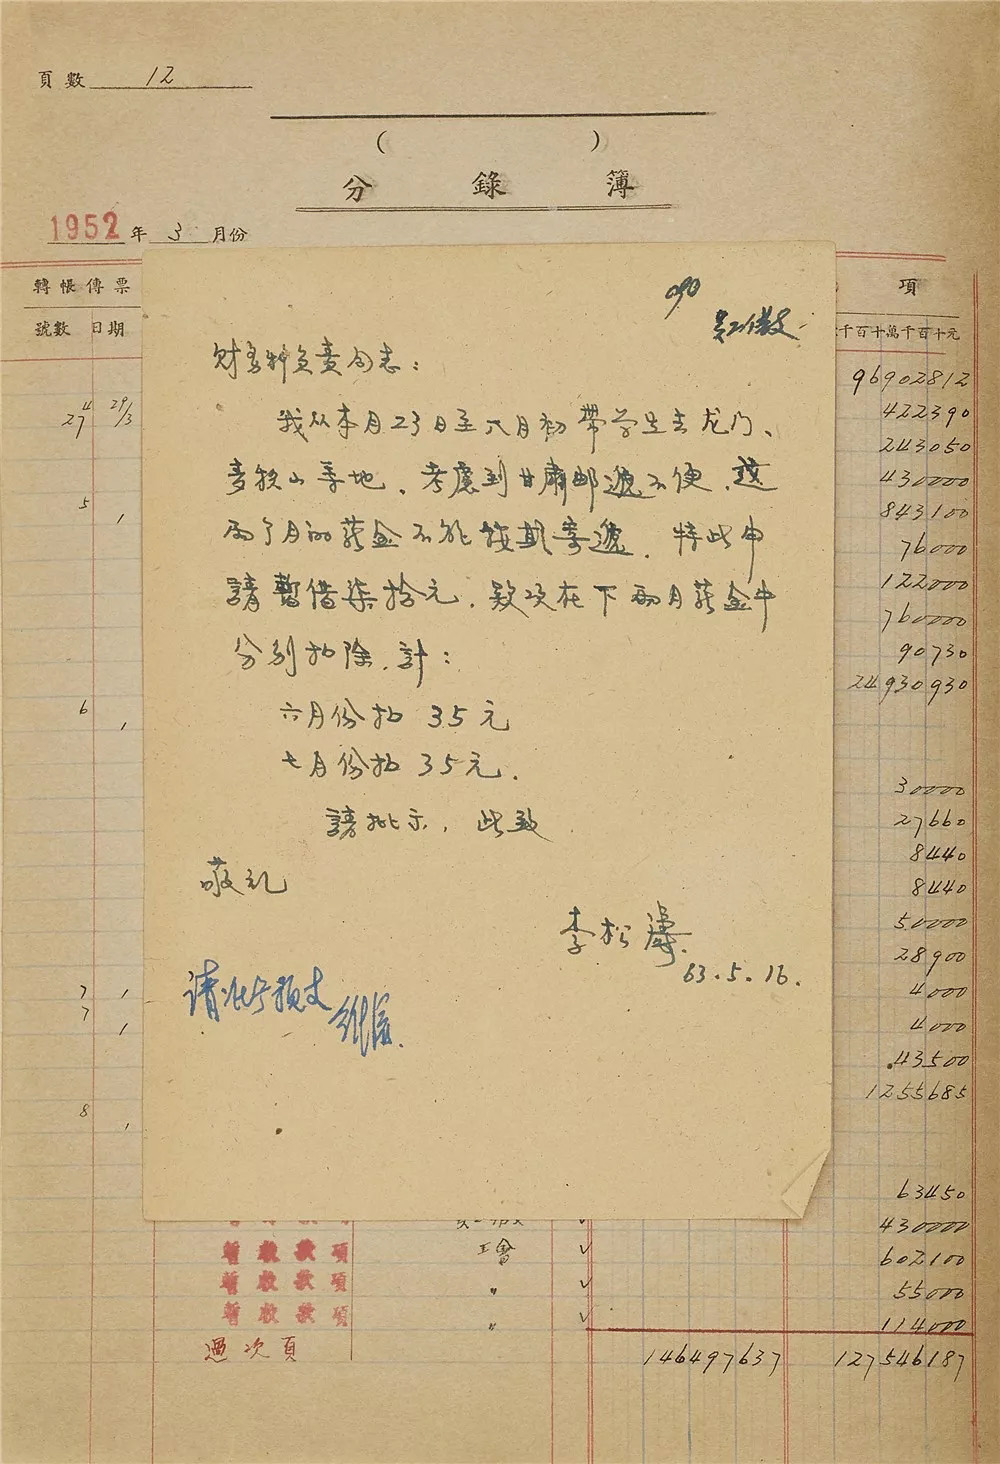 頁數 12
( )
分錄簿
1952年 3 月份
轉帳傳票
項
號數 日期
千百十萬千百十元
财务科负责同志：
我从本月23日至六月初带学生去龙门、
麦积山等地，考慮到甘肅邮遞不便，这
两个月的薪金不能按期寄遞，特此申
請暫借柒拾元，款项在下两月薪金中
分别扣除，計：
六月份扣 35元
七月份扣 35元．
請批示，此致
敬礼
李松濤．
63.5.16.
请准予预支
4 29/3
27
5 1
6 1
7 1
7 1
8 1
96902812
422390
243050
430000
843100
76000
122000
760000
90730
24930930
30000
27660
8440
8440
50000
28900
4000
4000
43500
1255685
63450
430000
暫收款項 工會 √ 602100
暫收款項 〃 √ 55000
暫收款項 〃 √ 114000
過次頁 146497637 127546187